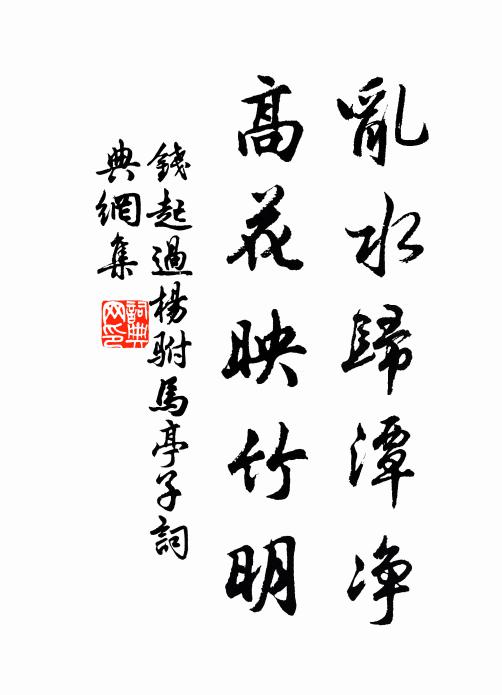 亂水歸潭净
高花映竹明
錢起過楊駙馬亭子詞
典網集
詞典網印